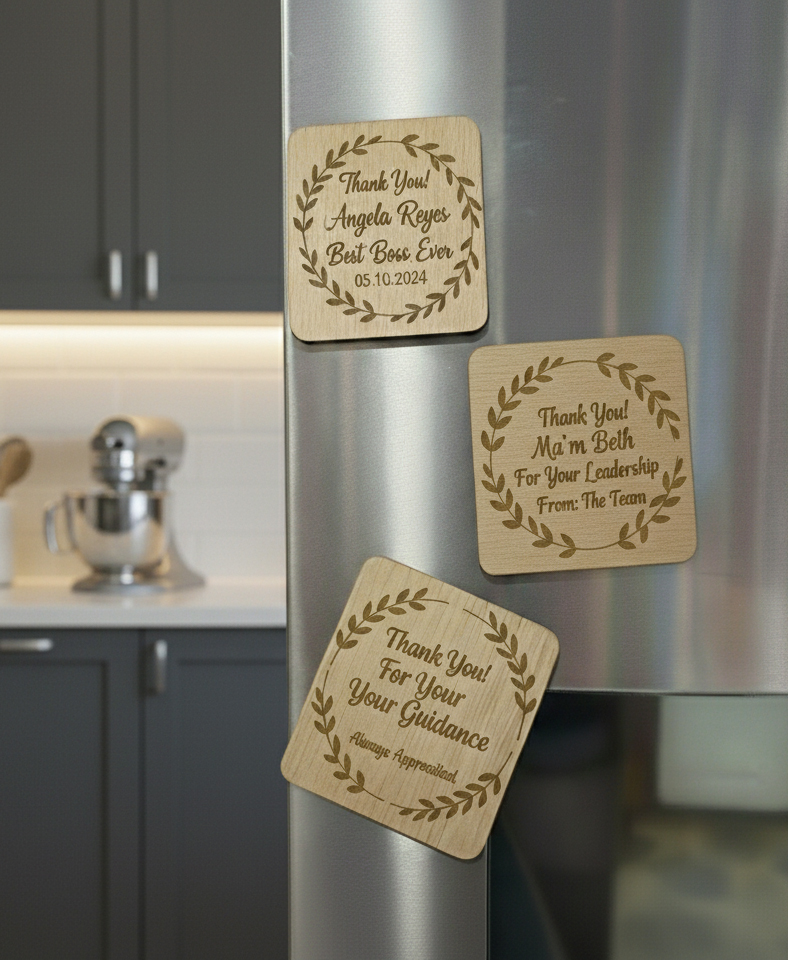 Thank You!
Angela Reyes
Best Boss Ever
05.10.2024
Thank You!
Ma'm Beth
For Your Leadership
From: The Team
Thank You!
For Your
Your Guidance